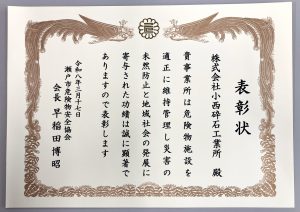 表彰状
株式会社小西砕石工業所 殿
貴事業所は危険物施設を
適正に維持管理し災害の
未然防止と地域社会の発展に
寄与された功績は誠に顕著で
ありますので表彰します
令和八年三月十七日
瀬戸市危険物安全協会
会長 早稲田博昭